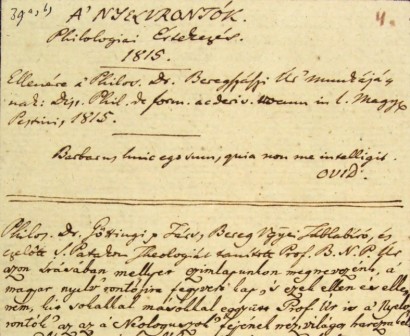 39 a, b)
A' NYELVRONTÓK.
4.
Philologiai Értekezés.
1815.
Ellenére a' Philos. Dr. Beregszászi Úr' munkájá-
nak: Diss. Phil. de form. ac deriv. vocum in l. Magy.
Pestini, 1815.
Barbarus huic ego sum, quia non me intelligit.
OVID.
Philos. Dr. Göttingi Társ, Bereg Vgyei Táblabíró, és
ezelőtt S. Patakon Theologiát tanított Prof. B. N. P. Úr
azon írásában mellyet czímlapunkon megnevezénk, a'
magyar nyelv rontójira fegyvert kap, 's ezek ellen és elle-
nem, ki sokakkal másokkal együtt Prof. Úr is a' Nyelv-
rontók az az a' Neologusok' fejének nem világos